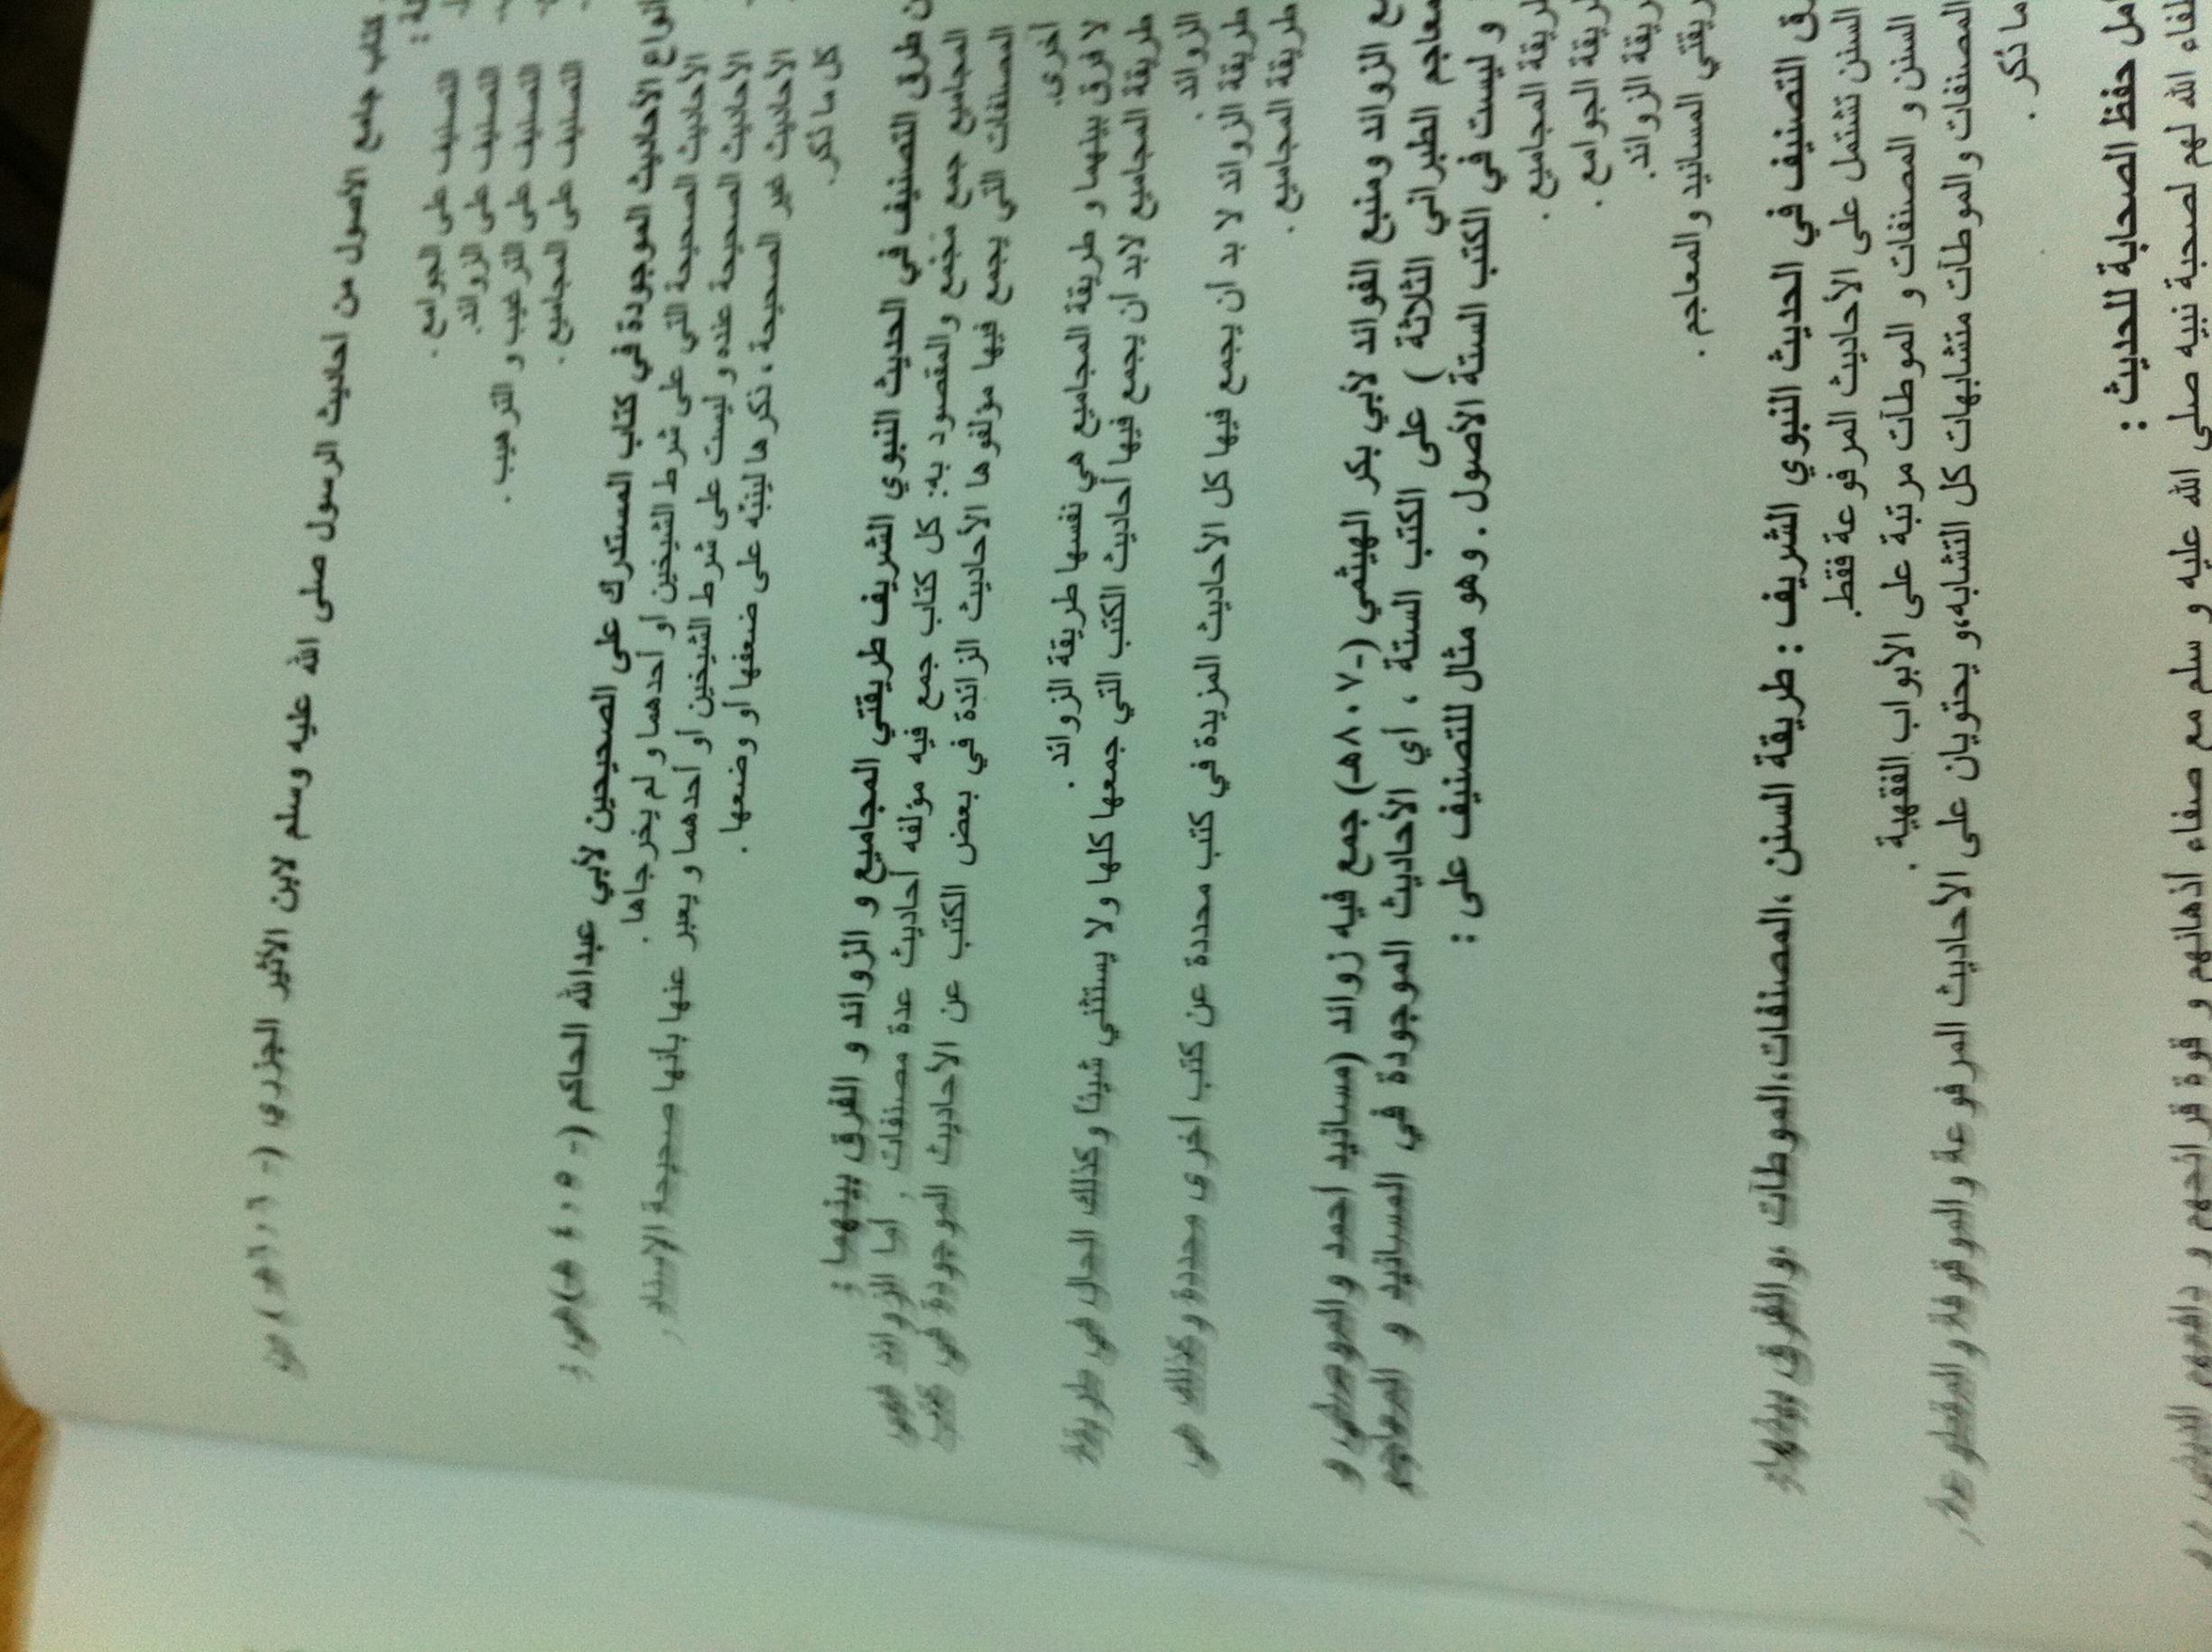 كتاب جامع الأصول من أحاديث الرسول صلى الله عليه وسلم لابن الأثير الجزري (-
التصنيف على الجوامع .
التصنيف على الزوائد.
التصنيف على الترغيب و الترهيب .
التصنيف على المجاميع .
أنواع الأحاديث الموجودة في كتاب المستدرك على الصحيحين لأبي عبدالله الحاكم (-
الأحاديث الصحيحة التي على شرط الشيخين أو أحدهما و لم يخرجاها .
الأحاديث الصحيحة عنده و ليست على شرط الشيخين أو أحدهما و يعبر عنها بأنها صحيحة الإسناد
الأحاديث غير الصحيحة ، ذكرها لينبّه على ضعفها أو وضعها .
كل ما ذكر.
طرق التصنيف في الحديث النبوي الشريف طريقتي المجاميع و الزوائد و الفرق بينهما :
المجاميع جمع مجمع والمقصود به: كل كتاب جمع فيه مؤلفه أحاديث عدة مصنفات , أما الزوائد فهي
المصنفات التي يجمع فيها مؤلفوها الأحاديث الزائدة في بعض الكتب عن الأحاديث الموجودة في كتب
أخرى.
لا فرق بينهما و طريقة المجاميع هي نفسها طريقة الزوائد .
طريقة المجاميع لابد أن يجمع فيها أحاديث الكتب التي جمعها كلها ولا يستثني شيئاً وكذلك الحال في طريقة
الزوائد .
طريقة الزوائد لا بد أن يجمع فيها كل الأحاديث المزيدة في كتب محددة عن كتب أخرى محددة وكذلك في
طريقة المجاميع .
مع الزوائد ومنبع الفوائد لأبي بكر الهيثمي (-٨٠٧هـ) جمع فيه زوائد (مسانيد أحمد والموصلي و
معاجم الطبراني الثلاثة ) على الكتب الستة ، أي الأحاديث الموجودة في المسانيد و المعاجم
و ليست في الكتب الستة الأصول . وهو مثال للتصنيف على :
طريقة المجاميع .
طريقة الجوامع .
طريقة الزوائد.
طريقتي المسانيد والمعاجم .
التصنيف في الحديث النبوي الشريف : طريقة السنن ،المصنفات،الموطآت ،والفرق بينها:
السنن تشتمل على الأحاديث المرفوعة فقط.
السنن و المصنفات و الموطآت مرتبة على الأبواب الفقهية .
المصنفات والموطآت متشابهات كل التشابه،و يحتويان على الأحاديث المرفوعة والموقوفة و المقطوعة.
ما ذكر .
حفظ الصحابة للحديث :
الله لهم لصحبة نبيه صلى الله عليه و سلم مع صفاء أذهانهم و قوة قرائحهم و دافعهم الديني